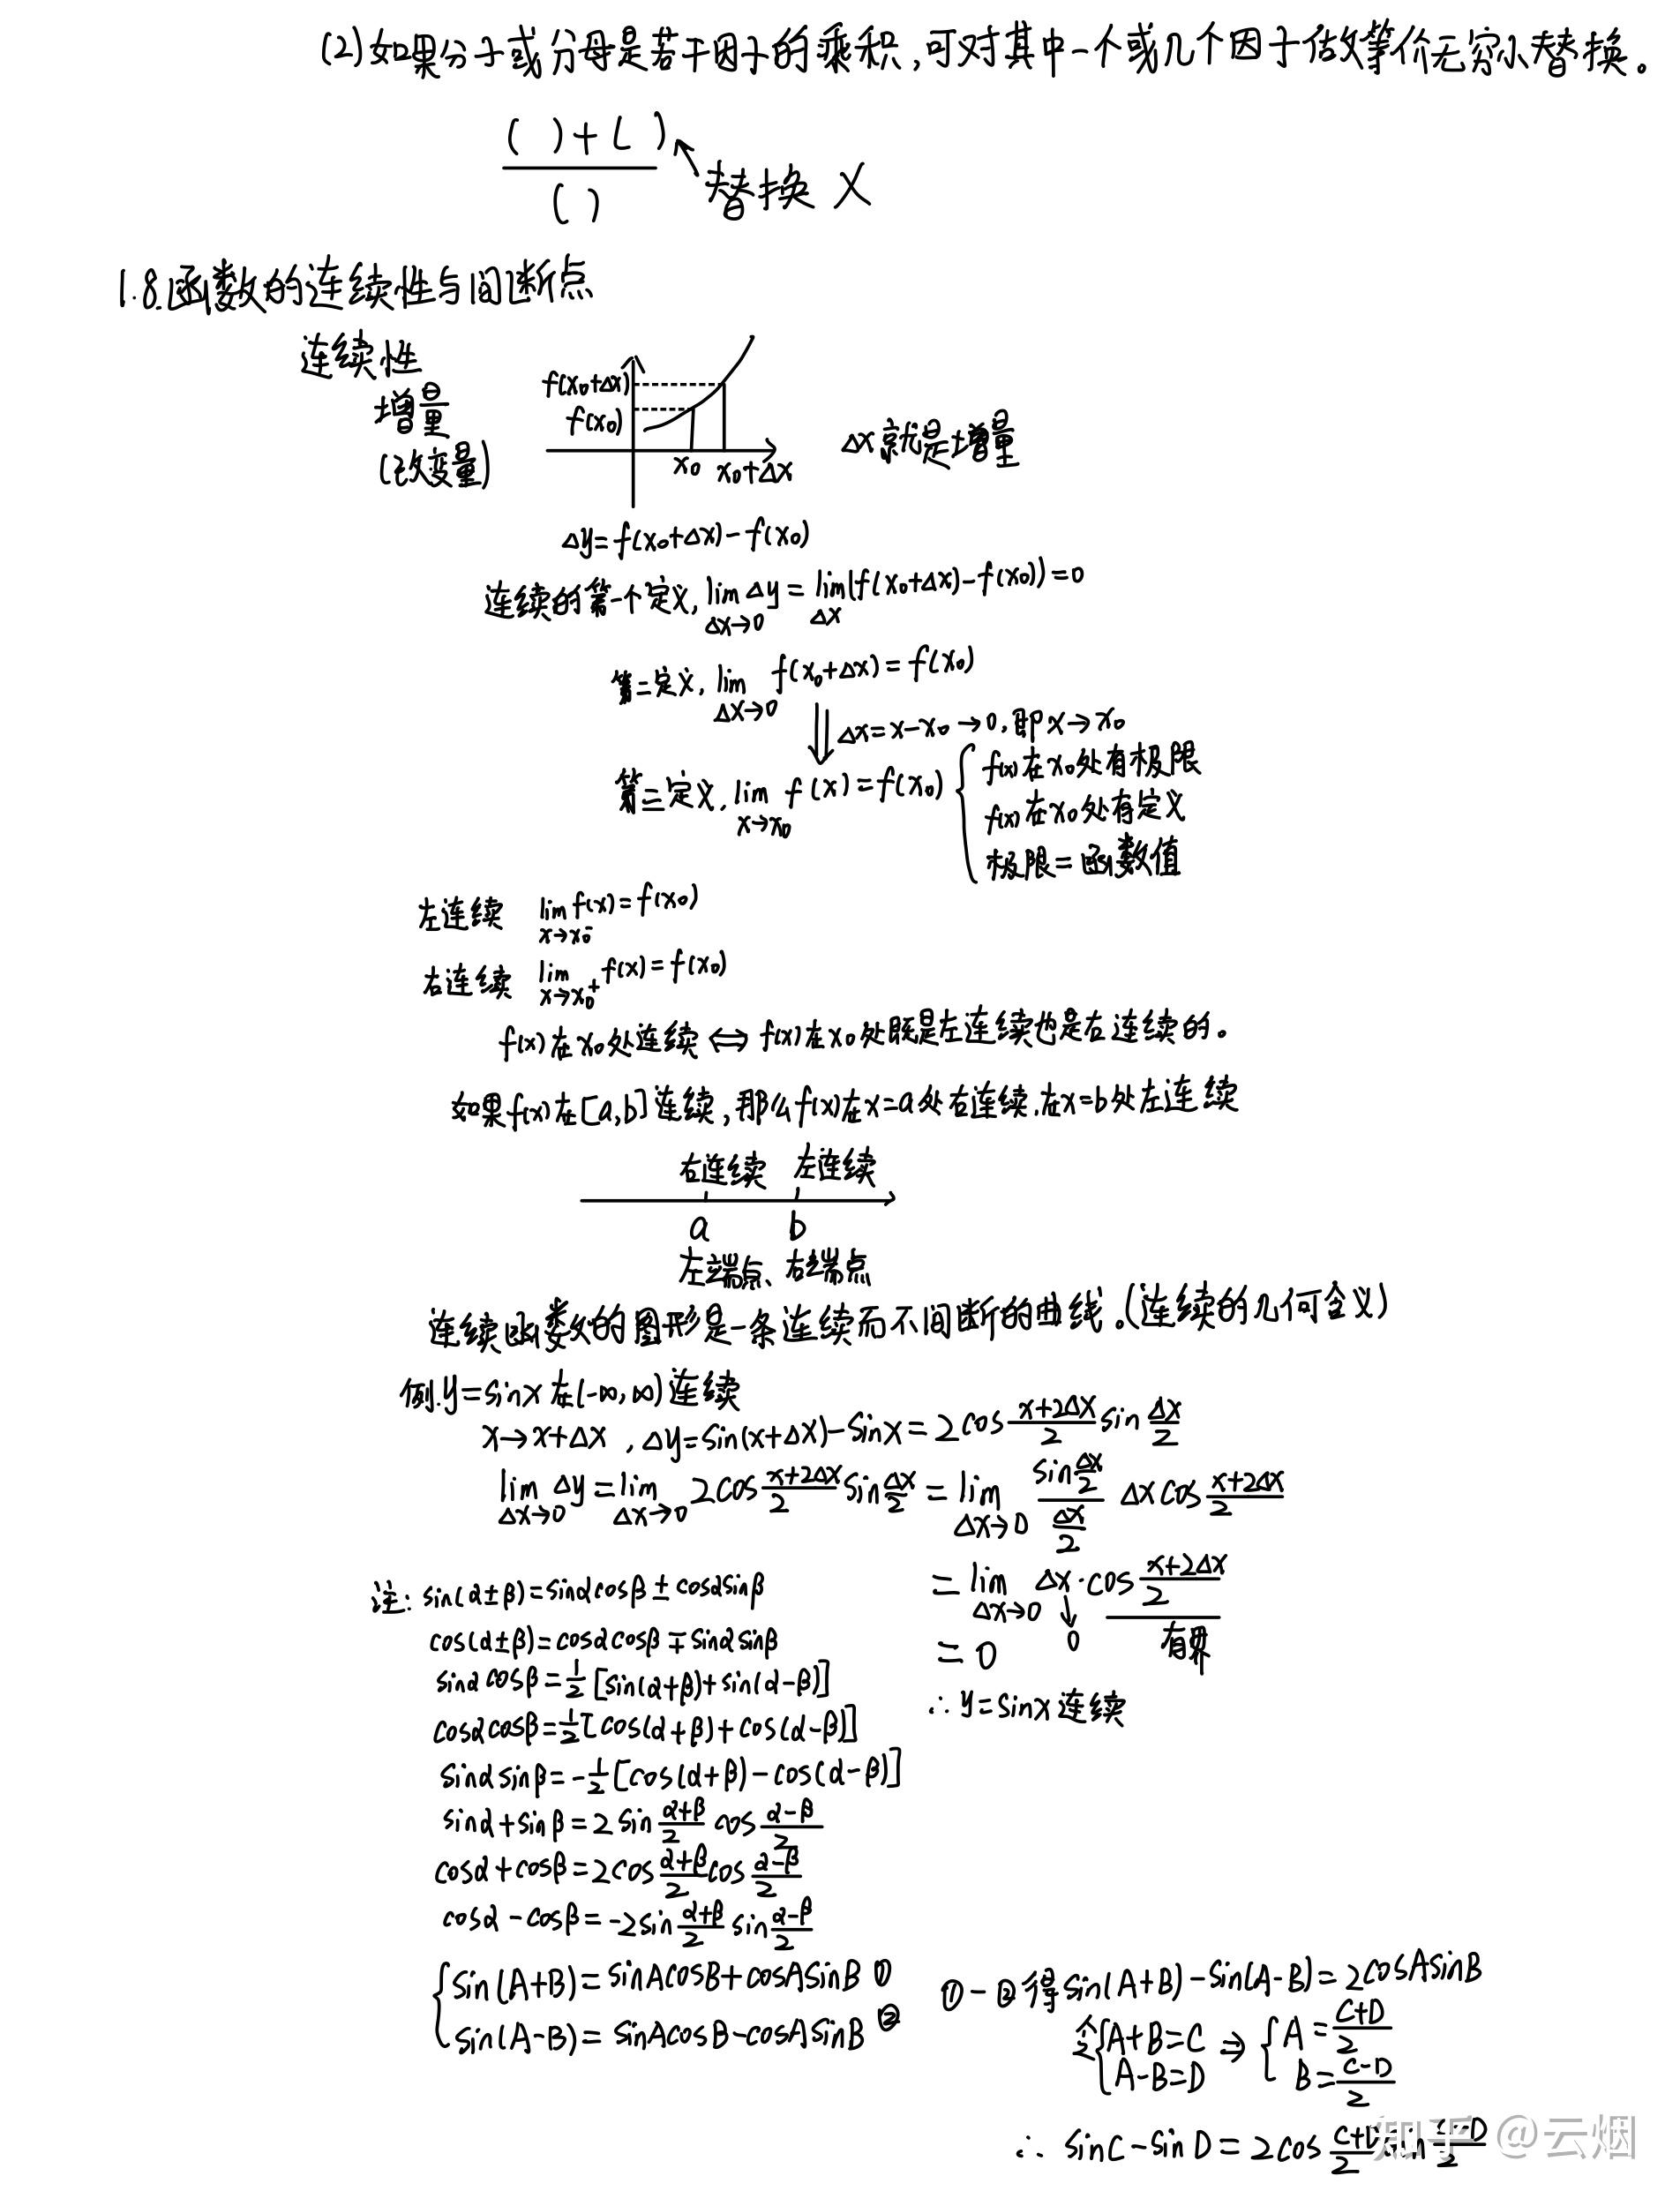 (2)如果分子或分母是若干因子的乘积,可对其中一个或几个因子做等价无穷小替换。
( )+( )
( )
替换 X
1.8.函数的连续性与间断点
连续性
增量
(改变量)
f(x₀+Δx)
f(x₀)
x₀ x₀+Δx
Δx就是增量
Δy=f(x₀+Δx)-f(x₀)
连续的第一个定义, lim Δx→0 Δy = lim Δx (f(x₀+Δx)-f(x₀))=0
第二定义, lim Δx→0 f(x₀+Δx)=f(x₀)
⇓ Δx=x-x₀→0,即x→x₀
第三定义, lim x→x₀ f(x)=f(x₀) {
f(x)在x₀处有极限
f(x)在x₀处存定义
极限=函数值
左连续 lim x→x₀⁻ f(x)=f(x₀)
右连续 lim x→x₀⁺ f(x)=f(x₀)
f(x)在x₀处连续⇔f(x)在x₀处既是左连续也是右连续的。
如果f(x)在[a,b]连续,那么f(x)在x=a处右连续,在x=b处左连续
右连续 左连续
a b
左端点、右端点
连续函数的图形是一条连续而不间断的曲线。(连续的几何含义)
例.y=sinx在(-∞,∞)连续
x→x+Δx ,Δy=sin(x+Δx)-sinx=2cos (x+2Δx)/2 sin Δx/2
lim Δx→0 Δy = lim Δx→0 2cos (x+2Δx)/2 sin Δx/2 = lim Δx→0 (sin Δx/2)/(Δx/2) Δx cos (x+2Δx)/2
= lim Δx→0 Δx·cos (x+2Δx)/2
↓ 0 有界
=0
∴y=sinx连续
注: sin(α±β)=sinαcosβ±cosαsinβ
cos(α±β)=cosαcosβ∓sinαsinβ
sinαcosβ=1/2[sin(α+β)+sin(α-β)]
cosαcosβ=1/2[cos(α+β)+cos(α-β)]
sinαsinβ=-1/2[cos(α+β)-cos(α-β)]
sinα+sinβ=2sin (α+β)/2 cos (α-β)/2
cosα+cosβ=2cos (α+β)/2 cos (α-β)/2
cosα-cosβ=-2sin (α+β)/2 sin (α-β)/2
{ sin(A+B)=sinAcosB+cosAsinB ①
sin(A-B)=sinAcosB-cosAsinB ②
①-②得sin(A+B)-sin(A-B)=2cosAsinB
令{ A+B=C ⇒ { A=(C+D)/2
A-B=D B=(C-D)/2
∴ sinC-sinD=2cos (C+D)/2 sin (C-D)/2
知乎 @云烟